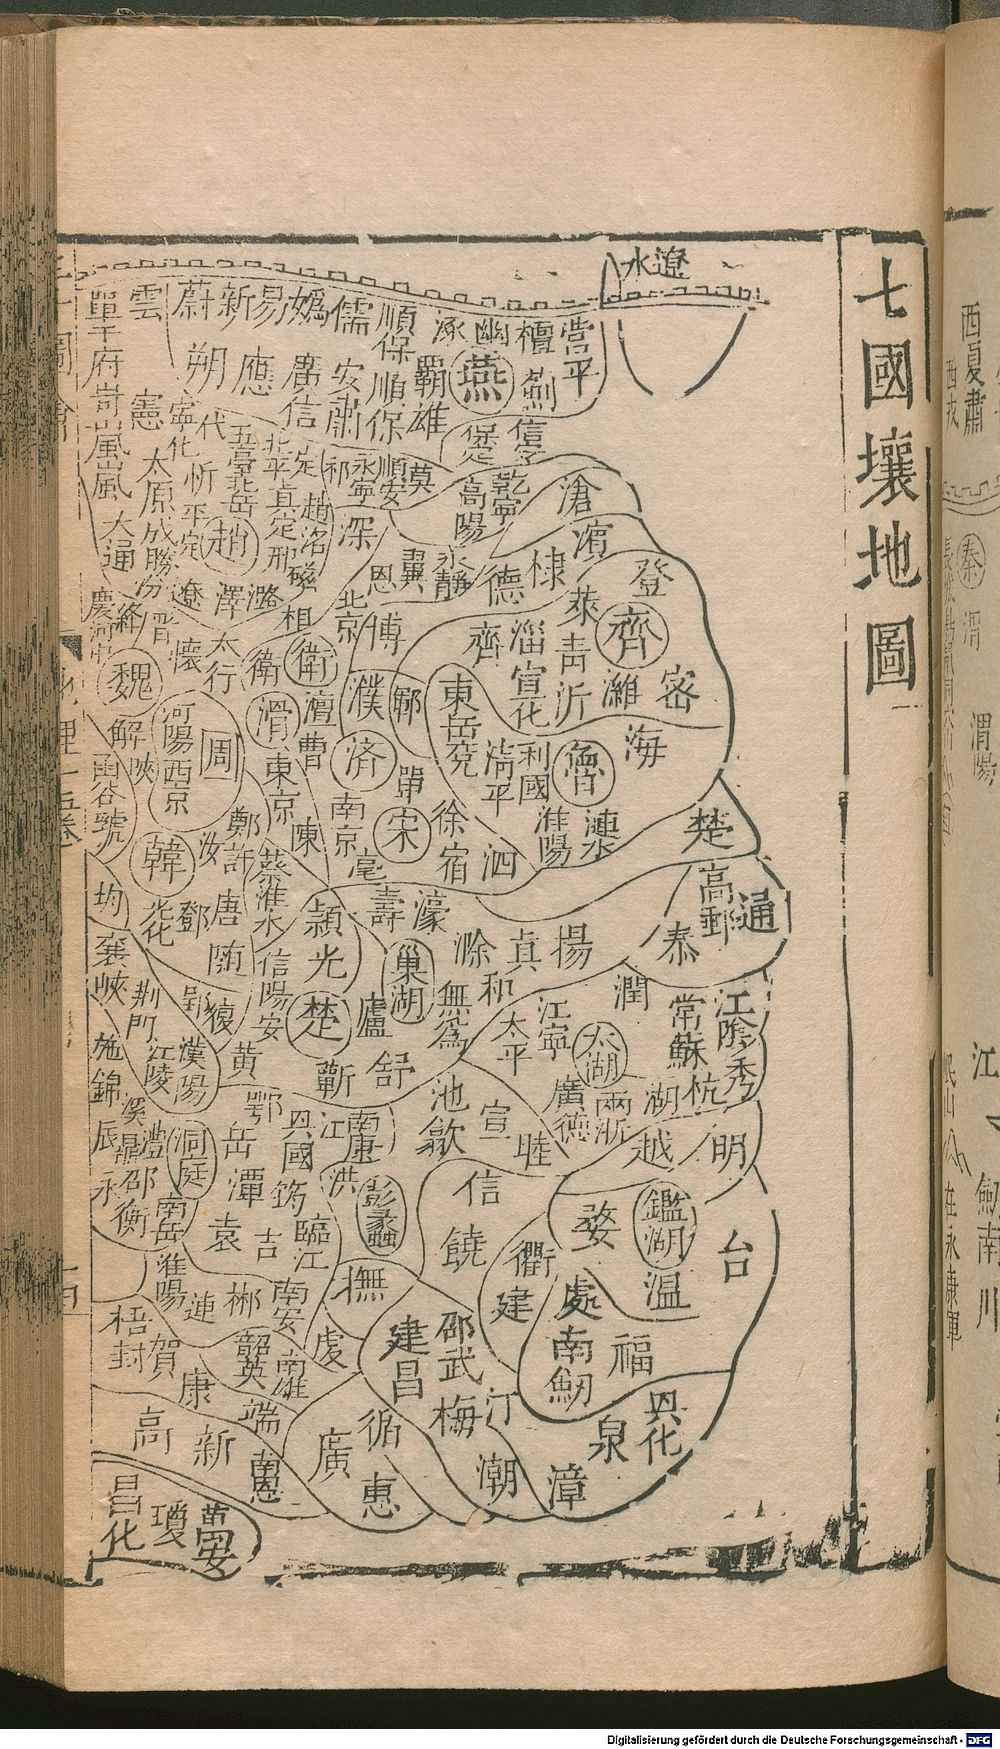 七國壤地圖
遼水
營平
檀薊
幽
涿
燕
順保順保
霸雄
儒
安肅
媯
廣信
易
新
蔚
應
朔
雲
憲
單于府岢嵐嵐
寧化
代
忻
太原
五臺北岳
北平真定邢
定
趙
祁
永寧
順安
莫
信安
乾寧
高陽
滄
濱
棣
德
永靜
冀
恩
深
洺磁
相
北京
博
平定
遼
澤
潞
大通
晉
絳
慶
懷
太行
衛
衛
魏
解
陝
函谷虢
河陽西京
周
滑
東京
澶
曹
濮
鄆
済
單
南京
宋
亳
徐
宿
泗
東岳兗
齊
淄
宣化
青
萊
登
齊
密
濰
沂
海
魯
利國
清平
淮陽
漣水
楚
高郵
通
泰
揚
真
滁
和
濠
壽
無為
巢湖
廬
舒
蘄
楚
潁
光
蔡
淮水
信陽
安
陳
鄭
許
汝
韓
唐
鄧
花
隨
均
襄
峽
荆門
江陵
郢
復
漢陽
黃
鄂
施
錦
辰
溪
鼎
澧
邵
衡
洞庭
岳
潭
興國
江
南康
洪
彭蠡
筠
袁
吉
臨江
南岳
淮陽
連
郴
南安
韶
英
南雄
虔
撫
建昌
邵武
梅
汀
信
饒
池
歙
宣
睦
太平
江寧
潤
常
蘇
江陰
秀
太湖
廣德
兩浙
湖
杭
越
明
婺
鑑湖
溫
台
衢
建
處
南劒
福
興化
泉
漳
潮
循
惠
廣
端
南恩
康
新
高
賀
梧
封
昌化
瓊
萬安
西夏
肅
西戎
秦
渭
渭陽
江
岷山
劒南
川
在永康軍
Digitalisierung gefördert durch die Deutsche Forschungsgemeinschaft - DFG